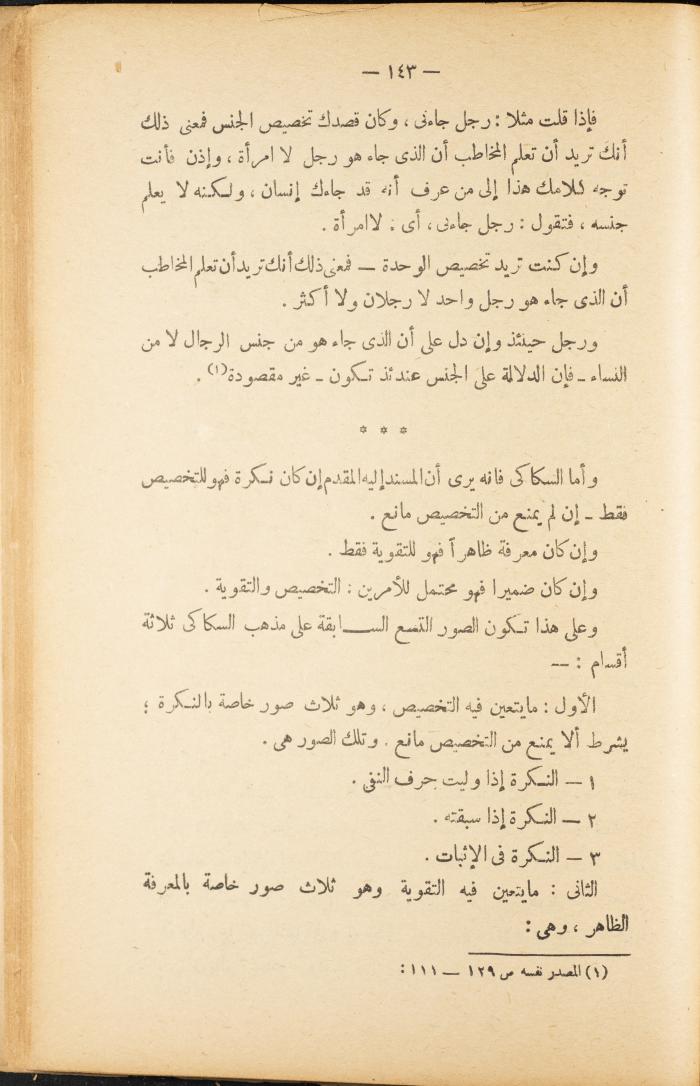 — ١٤٣ —
فإذا قلت مثلا : رجل جاءنى ، وكان قصدك تخصيص الجنس فمعنى ذلك
أنك تريد أن تعلم المخاطب أن الذى جاء هو رجل لا امرأة ، وإذن فأنت
توجه كلامك هذا إلى من عرف أنه قد جاءك إنسان ، ولكنه لا يعلم
جنسه ، فتقول : رجل جاءنى ، أى : لا امرأة .
وإن كنت تريد تخصيص الوحدة — فمعنى ذلك أنك تريد أن تعلم المخاطب
أن الذى جاء هو رجل واحد لا رجلان ولا أكثر .
ورجل حينئذ وإن دل على أن الذى جاء هو من جنس الرجال لا من
النساء - فإن الدلالة على الجنس عندئذ تكون - غير مقصودة (١) .
* * *
وأما السكاكى فانه يرى أن المسند إليه المقدم إن كان نكرة فهو للتخصيص
فقط - إن لم يمنع من التخصيص مانع .
وإن كان معرفة ظاهراً فهو للتقوية فقط .
وإن كان ضميرا فهو محتمل للأمرين : التخصيص والتقوية .
وعلى هذا تكون الصور التسع الســـابقة على مذهب السكاكى ثلاثة
أقسام : —
الأول : مايتعين فيه التخصيص ، وهو ثلاث صور خاصة بالنكرة ؛
بشرط ألا يمنع من التخصيص مانع . وتلك الصور هى .
١ — النكرة إذا وليت حرف النفى .
٢ — النكرة إذا سبقته .
٣ — النكرة فى الإثبات .
الثانى : مايتعين فيه التقوية وهو ثلاث صور خاصة بالمعرفة
الظاهر ، وهى :
(١) المصدر نفسه ص ١٢٩ — ١١١ :